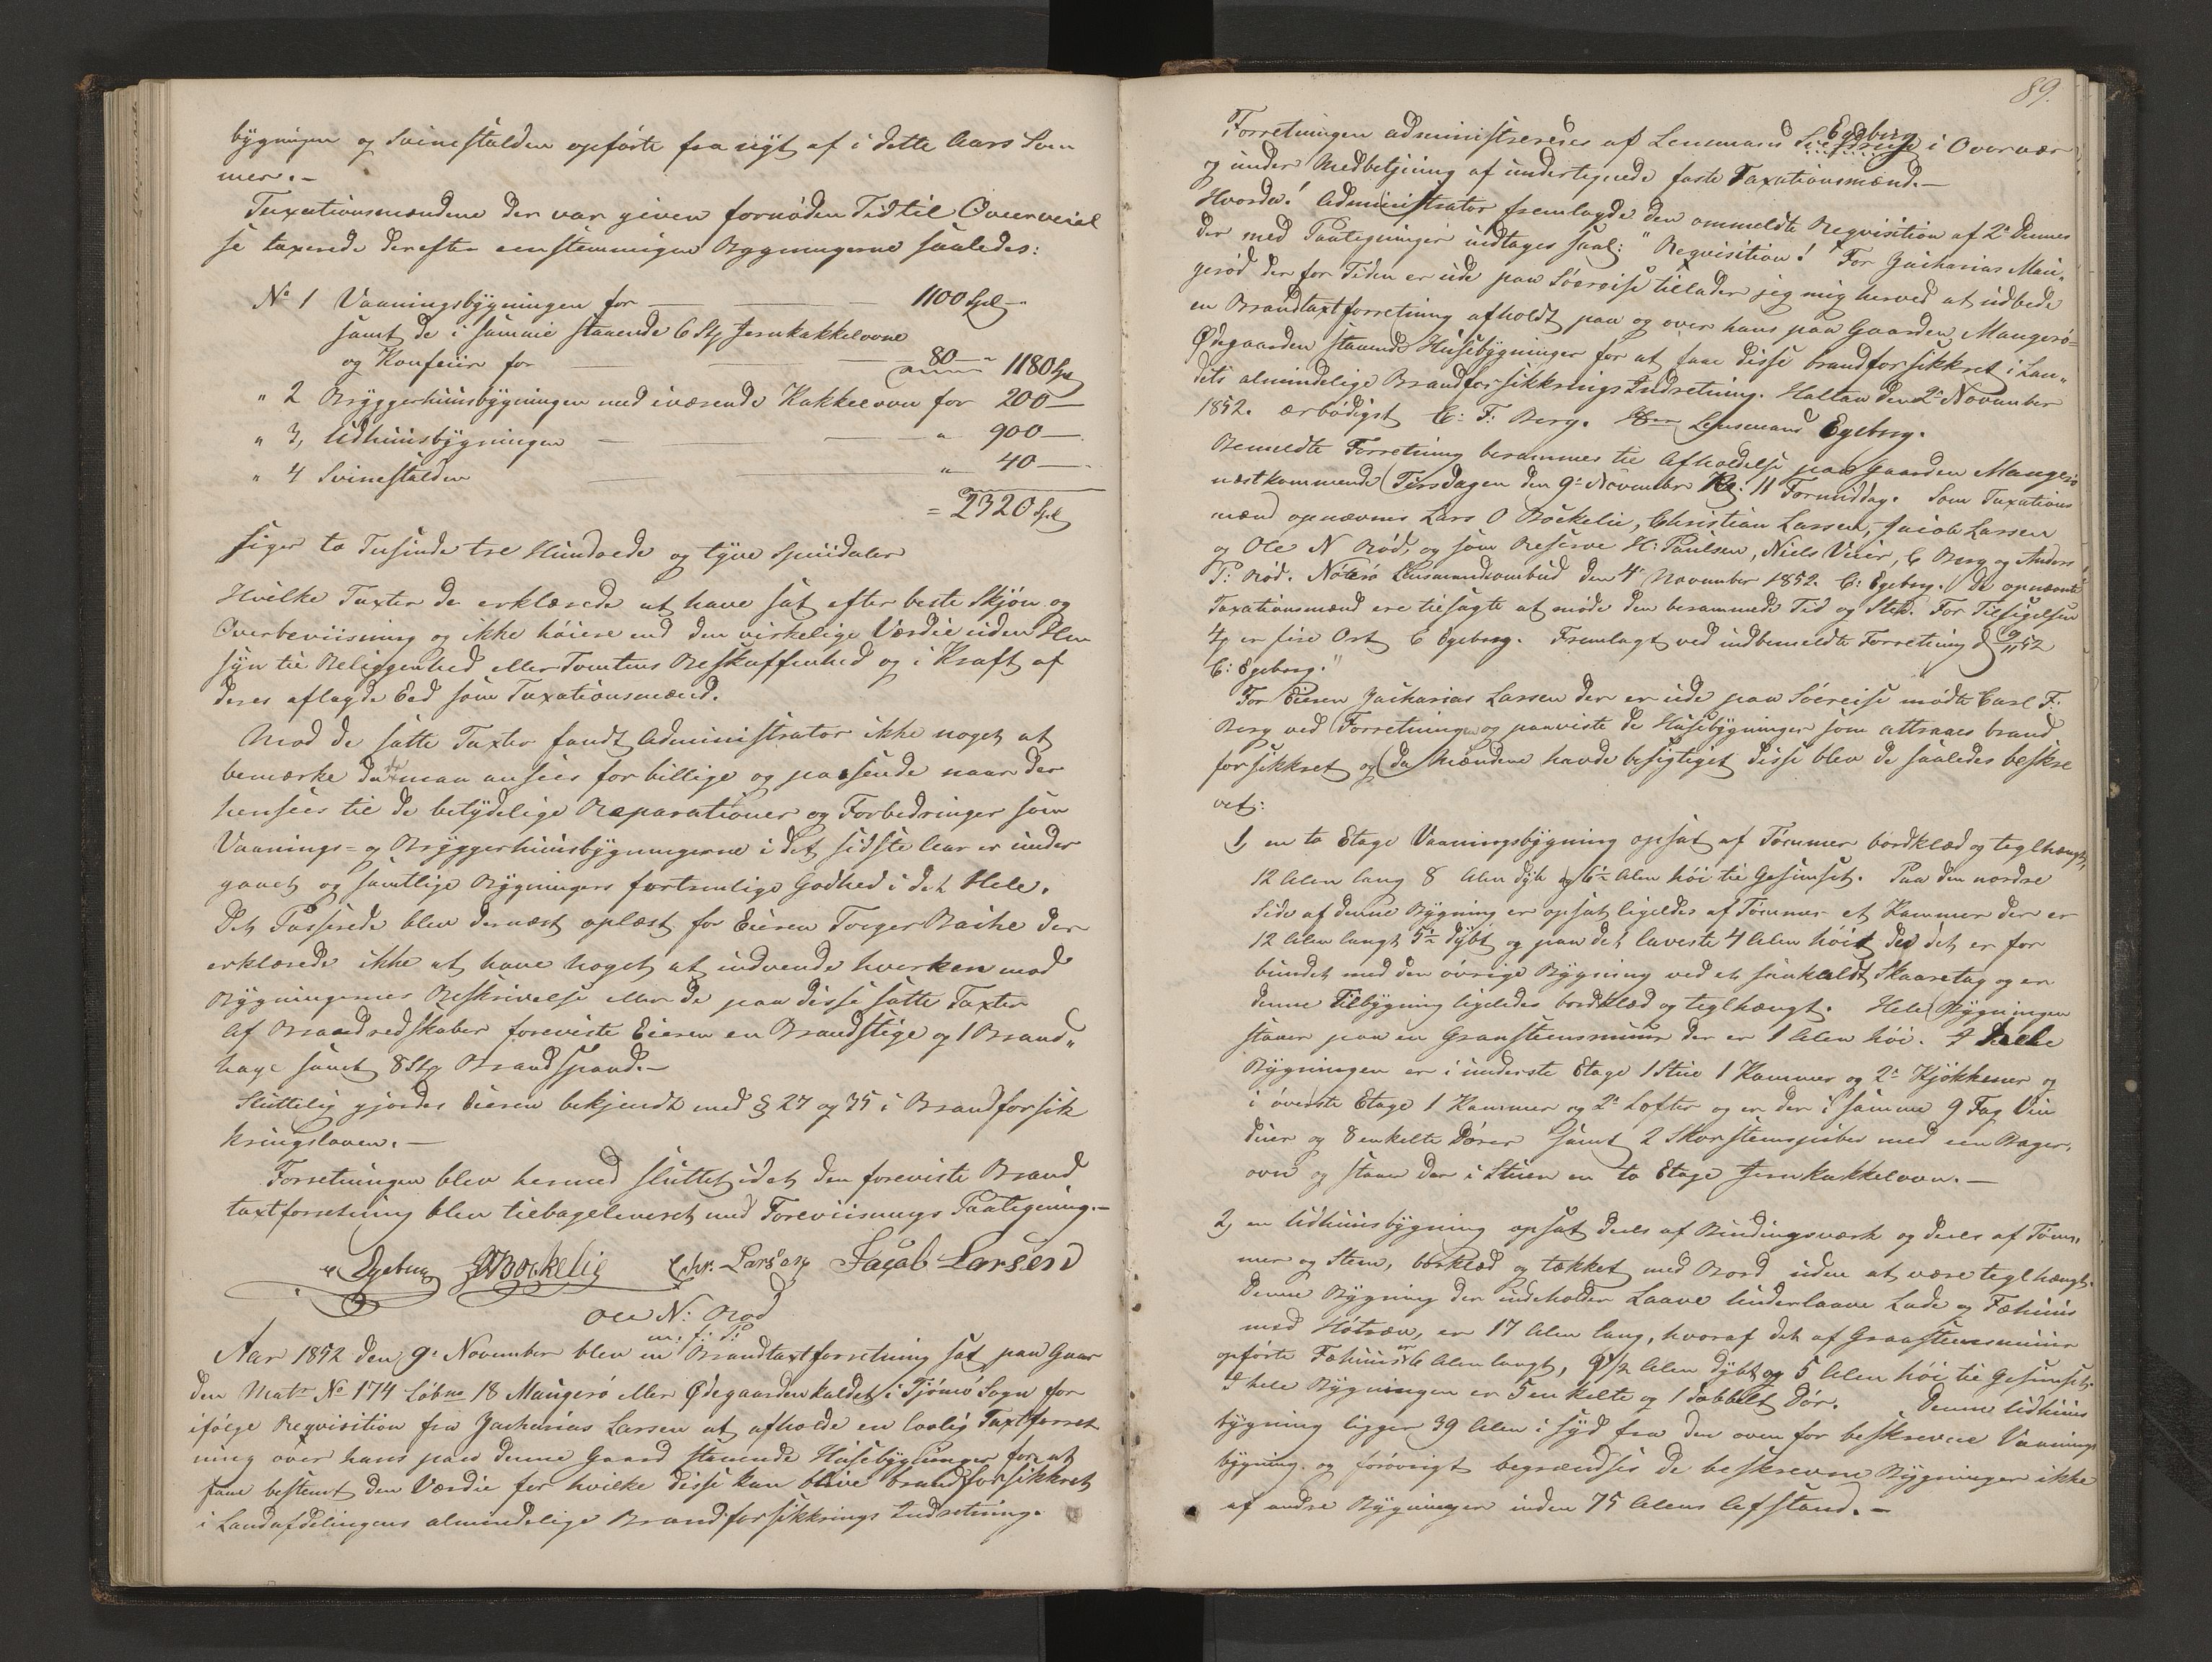 bygningen og Svinestalden opførte fra nyt af i dette Aars Som
mer.-
Taxationsmændene der var given fornøden Tid til Overveiel
se taxerede derefter eenstemmigen Bygningerne saaledes:
No 1 Vaaningsbygningen for 1100 Spd
samt de i samme staaende 6 Stk Jernkakkelovne
og Konfuur for 80 - 1180 Spd
" 2 Bryggerhuusbygningen med iværende Kakkelovn for 200 -
" 3, Udhuusbygningen " 900 -
" 4 Svinestalden " 40 -
= 2320 Spd
siger to Tusinde tre Hundrede og tyve Speciedaler
Hvilke Taxter de erklærede at have sat efter beste Skjøn og
Overbeviisning og ikke høiere end den virkelige Værdie uden Hen
syn til Beliggenhed eller Tomtens Beskaffenhed og i Kraft af
deres aflagde Eed som Taxationsmænd.
Mod de satte Taxter fandt Administrator ikke noget at
bemærke da de maa ansees for billige og passende naar der
hensees til de betydelige Reparationer og Forbedringer som
Vaanings- og Bryggerhuusbygningerne i det sidste Aar er under
gaaet og samtlige Bygningers fortrinlige Godhed i det Hele.
Det Passerede blev dernæst oplæst for Eieren Torger Bache der
erklærede ikke at have noget at indvende hverken mod
Bygningernes Beskrivelse eller de paa disse satte Taxter
Af Brandredskaber foreviste Eieren en Brandstige og 1 Brand"
hage samt 8 Stk Brandspand.-
Sluttelig gjordes Eieren bekjendt med § 27 og 35 i Brandforsik
kringsloven.-
Forretningen blev hermed sluttet idet den foreviste Brand
taxtforretning blev tilbageleveret med Foreviisnings Paategning.-
Egeberg Bockelie Chr. Larsen Jacob Larsen
Ole N: Rød
m. f. P.
Aar 1852 den 9de November blev en Brandtaxtforretning sat paa Gaar
den Matr No 174 Løbno 18 Maugerø eller Ødegaarden kaldet i Tjømø Sogn for
ifølge Reqvisition fra Zacharias Larsen at afholde en lovlig Taxtforret
ning over hans paa denne Gaard staaende Huusebygninger for at
faae bestemt den Værdie for hvilke disse kan blive brandforsikkret
i Landafdelingens almindelige Brandforsikkrings Indretning.
89.
Forretningen administreredes af Lensmand Egeberg i Overvær
og under Medbetjening af undertegnede faste Taxationsmænd.-
Hvorda! Administrator fremlagde den ommeldte Reqvisition af 2de dennes
der med Paategninger indtages saal: "Reqvisition! For Zacharias Mau"
gerød der for Tiden er ude paa Søereise tillader jeg mig herved at udbede
en Brandtaxtforretning afholdt paa og over hans paa Gaarden Maugerø=
Ødegaarden staaende Huusebygninger for at faae disse brandforsikkret i Lan"
dets almindelige Brandforsikkrings Indretning. Holtan den 2de November
1852. ærbødigst C: F: Berg. Hr Lensmand Egeberg.
Bemeldte Forretning berammes til Afholdelse paa Gaarden Maugerø
næstkommende Tirsdagen den 9de November Kl: 11 Formiddag. Som Taxations
mænd opnævnes Lars O Bockelie, Christian Larsen, Jacob Larsen
og Ole N Rød, og som Reserve H: Paulsen, Niels Veier, C Berg og Anders
P: Rød. Nøterø Lensmandsombud den 4de November 1852. C: Egeberg. De opnævnte
Taxationsmænd ere tilsagte at møde den berammede Tid og Sted. For Tilsigelsen
4 er fire Ort C Egeberg. Fremlagt ved indbemeldte Forretning d 9/11 52
C: Egeberg."
For Eieren Zacharias Larsen der er ude paa Søereise mødte Carl F.
Berg ved Forretningen og paaviste de Huusebygninger som attraaes brand
forsikkret og da Mændene havde besigtiget disse blev de saaledes beskre
vet:
1, en to Etage Vaaningsbygning opsat af Tømmer bordklæd og teglhængt,
12 Alen lang 8 Alen dyb og 6½ Alen høi til Gesimset. Paa den nordre
Side af denne Bygning er opsat ligeledes af Tømmer et Kammer der er
12 Alen langt 5½ dybt og paa det laveste 4 Alen høit det er for
bundet med den øvrige Bygning ved et saakaldt Skaaretag og er
denne Tilbygning ligeledes bordklæd og teglhængt. Hele Bygningen
staaer paa en Graasteensmuur der er 1 Alen høi. I hele
Bygningen er i underste Etage 1 Stue 1 Kammer og 2de Kjøkkener og
i øverste Etage 1 Kammer og 2de Lofter og er der i samme 9 Fag Vin
duer og 8 enkelte Dører samt 2 Skorsteenspiber med een Bager"
ovn og staar der i Stuen en to Etage Jernkakkelovn.-
2, en Udhuusbygning opsat deels af Bindingsværk og deels af Tøm"
mer og Steen, bordklæd og tækket med Bord uden at være teglhængt.
Denne Bygning der indeholder Laave Underlaave Lade og Fæhuus
med Høtræv, er 17 Alen lang, hvoraf det af Graasteensmuur
opførte Fæhuus er 6 Alen langt, 9½ Alen dybt og 5 Alen høi til Gesimset.
I hele Bygningen er 5 enkelte og 1 dobbelt Dør. Denne Udhuus
bygning ligger 39 Alen i syd fra den oven for beskrevne Vaanings
bygning. og forøvrigt begrændses de beskrevne Bygninger ikke
af andre Bygninger inden 75 Alens Afstand.-